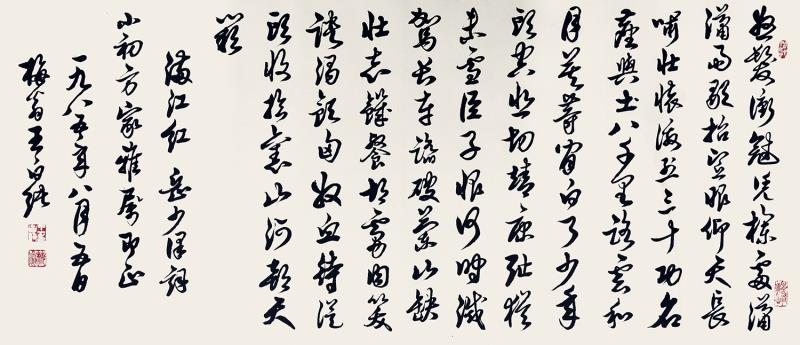 怒髮衝冠憑欄處瀟
瀟雨歇抬望眼仰天長
嘯壯懷激烈三十功名
塵與土八千里路雲和
月莫等閒白了少年
頭空悲切靖康恥猶
未雪臣子恨何時滅
駕長車踏破蘭山缺
壯志饑餐胡虜肉笑
談渴飲匈奴血待從
頭收拾舊山河朝天
闕
滿江紅 岳少保詞
小初方家雅屬即正
一九八五年八月五日
梅翁王